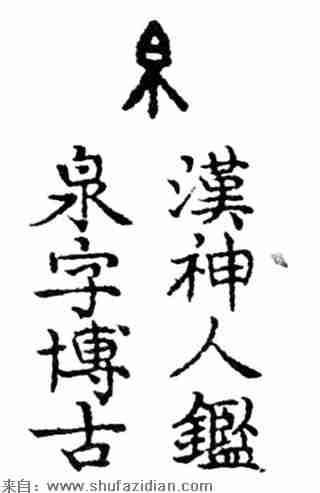 泉
漢神人鑑
泉字博古
来自：www.shufazidian.com